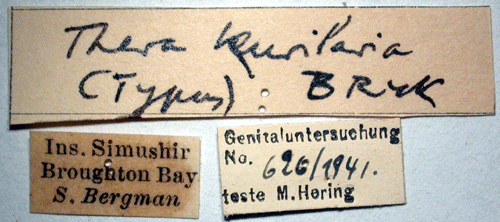 Thera kurilaria
(Typus) BRYK
Ins. Simushir
Broughton Bay
S. Bergman
Genitaluntersuchung
No. 626/1941.
teste M.Hering